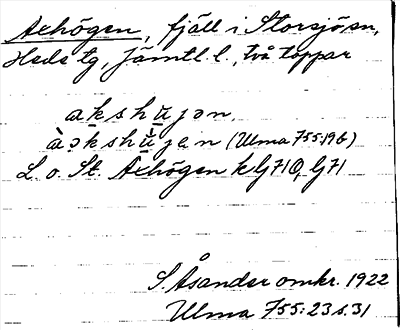 Axhögen, fjäll i Storsjö sn,
Heds tg, Jämtl. l., två toppar
akshʉjən.
àəkshʉ̀jən (Ulma 755:196)
L. o. St. Axhögen kbl 71 Ö, bl 71
S. Åsander omkr. 1922
Ulma 755:23 s. 31